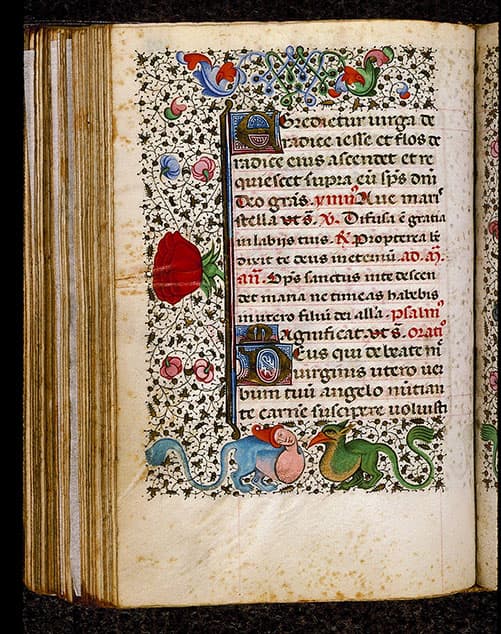 Egredietur uirga de
radice iesse et flos de
radice eius ascendet et re
quiescet supra eū sp̄s dn̄i
Deo grās. ymnꝰ Aue maris
stella vt s̄. ℣. Difusa ē gratia
in labijs tuis. ℟ Propterea be
dixit te deus in eternū. ad. m̄.
an̄. Sp̄s sanctus in te descen
det maria ne timeas habebis
in utero filiū dei all'a. psalmꝰ
Magnificat. vt s̄. Oratiꝰ
Deus qui de beate m̄
uirginis utero uer
bum tuū angelo nūtian
te carnē suscipere uoluisti